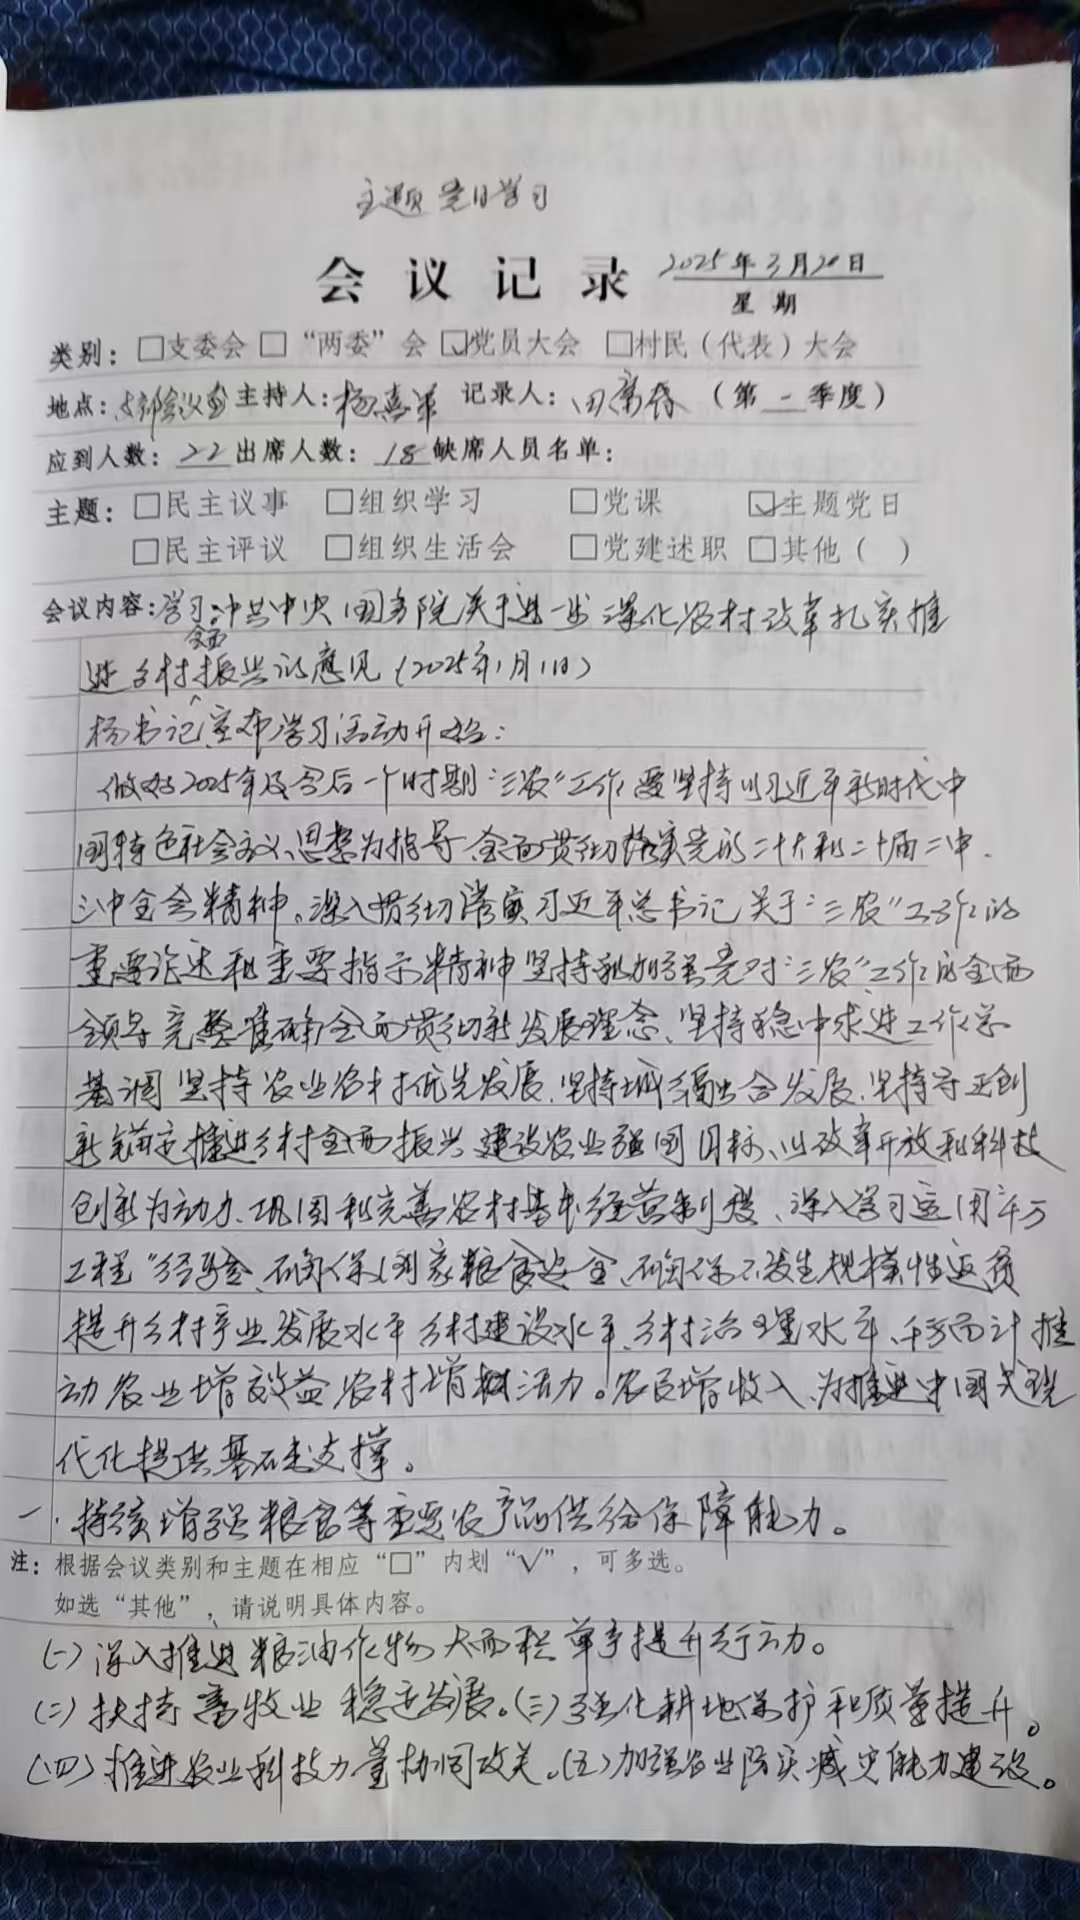 主题党日学习
会议记录 2025年3月20日
星期
类别：□支委会 □“两委”会 ☑党员大会 □村民（代表）大会
地点：村部会议室 主持人：杨喜军 记录人：田 （第一季度）
应到人数：22 出席人数：18 缺席人员名单：
主题：□民主议事 □组织学习 □党课 ☑主题党日
□民主评议 □组织生活会 □党建述职 □其他（ ）
会议内容：学习：中共中央国务院关于进一步深化农村改革扎实推
全面
进乡村振兴的意见（2025年1月1日）
杨书记宣布学习活动开始：
做好2025年及今后一个时期“三农”工作要坚持以习近平新时代中
国特色社会主义、思想为指导、全面贯彻落实党的二十大和二十届二中、
三中全会精神。深入贯彻落实习近平总书记关于“三农”工作的
重要论述和重要指示精神坚持和加强党对“三农”工作的全面
领导完整准确全面贯彻新发展理念、坚持稳中求进工作总
基调坚持农业农村优先发展、坚持城乡融合发展、坚持守正创
新锚定推进乡村全面振兴建设农业强国目标、以改革开放和科技
创新为动力、巩固和完善农村基本经营制度、深入学习运用“千万
工程”经验、确保国家粮食安全、确保不发生规模性返贫
提升乡村产业发展水平乡村建设水平、乡村治理水平、千方百计推
动农业增效益农村增活力。农民增收入、为推进中国式现
代化提供基础支撑。
一、持续增强粮食等重要农产品供给保障能力。
注：根据会议类别和主题在相应“□”内划“√”，可多选。
如选“其他”，请说明具体内容。
(一)深入推进粮油作物大面积单产提升行动。
(二)扶持畜牧业稳定发展。(三)强化耕地保护和质量提升。
(四)推进农业科技力量协同攻关。(五)加强农业防灾减灾能力建设。